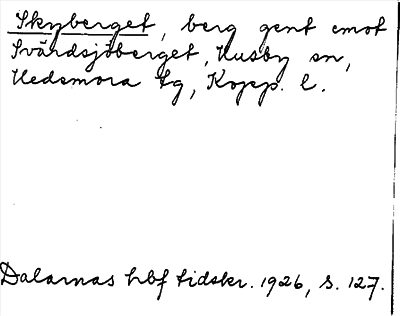 Skyberget, berg gent emot
Svärdsjöberget, Husby sn,
Hedemora tg, Kopp. l.
Dalarnas hbf tidskr. 1926, s. 127.